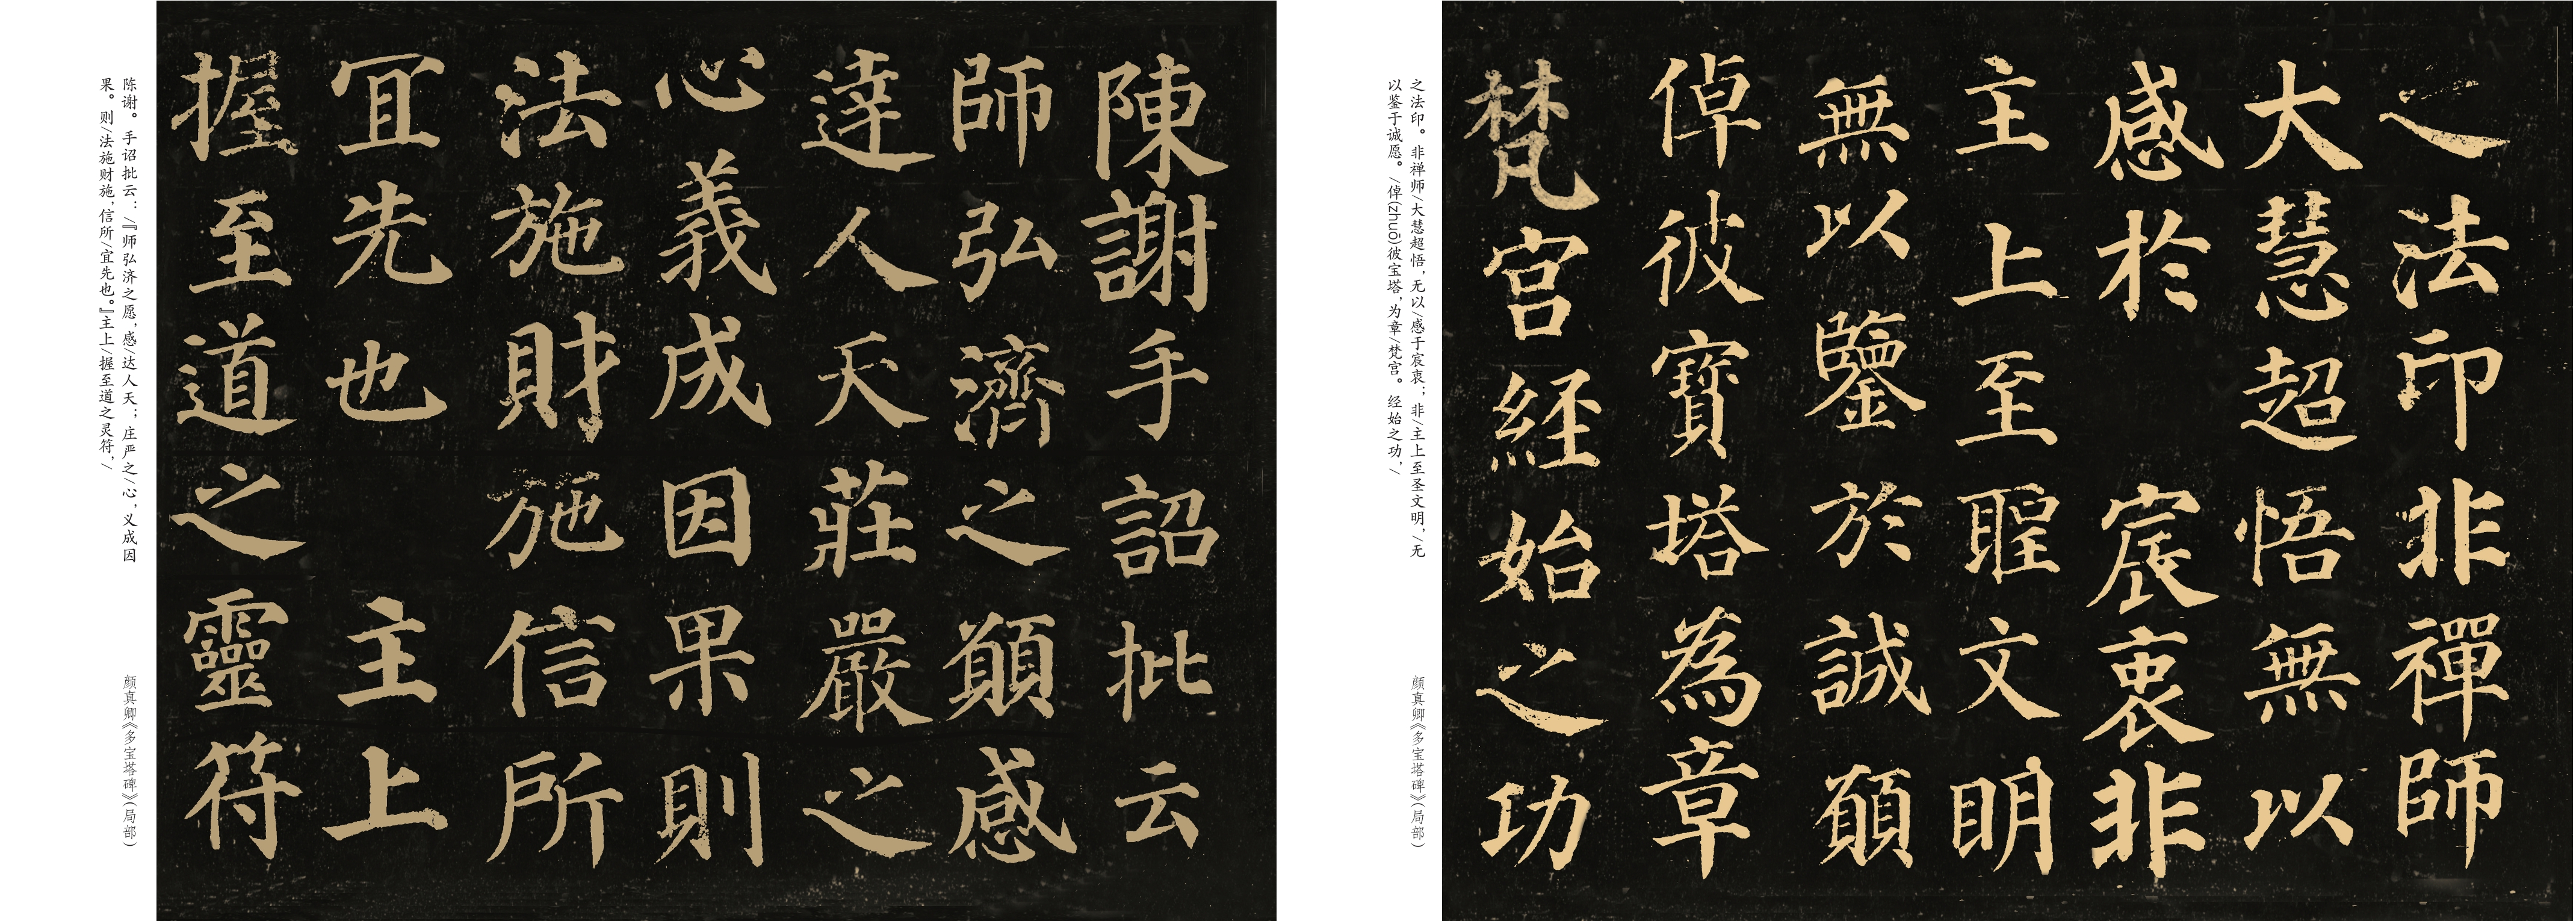 之法印非禪師
大慧超悟無以
感於宸衷非
主上至聖文明
無以鑒於誠願
倬彼寶塔為章
梵宮經始之功
之法印。非禅师/大慧超悟,无以/感于宸衷;非/主上至圣文明,/无
以鉴于诚愿。/倬(zhuō)彼宝塔,为章/梵宫。经始之功,/
颜真卿《多宝塔碑》(局部)
陳謝手詔批云
師弘濟之願感
達人天莊嚴之
心義成因果則
法施財施信所
宜先也主上
握至道之靈符
陈谢。手诏批云:/『师弘济之愿,感/达人天;庄严之/心,义成因
果。则/法施财施,信所/宜先也。』主上/握至道之灵符,/
颜真卿《多宝塔碑》(局部)